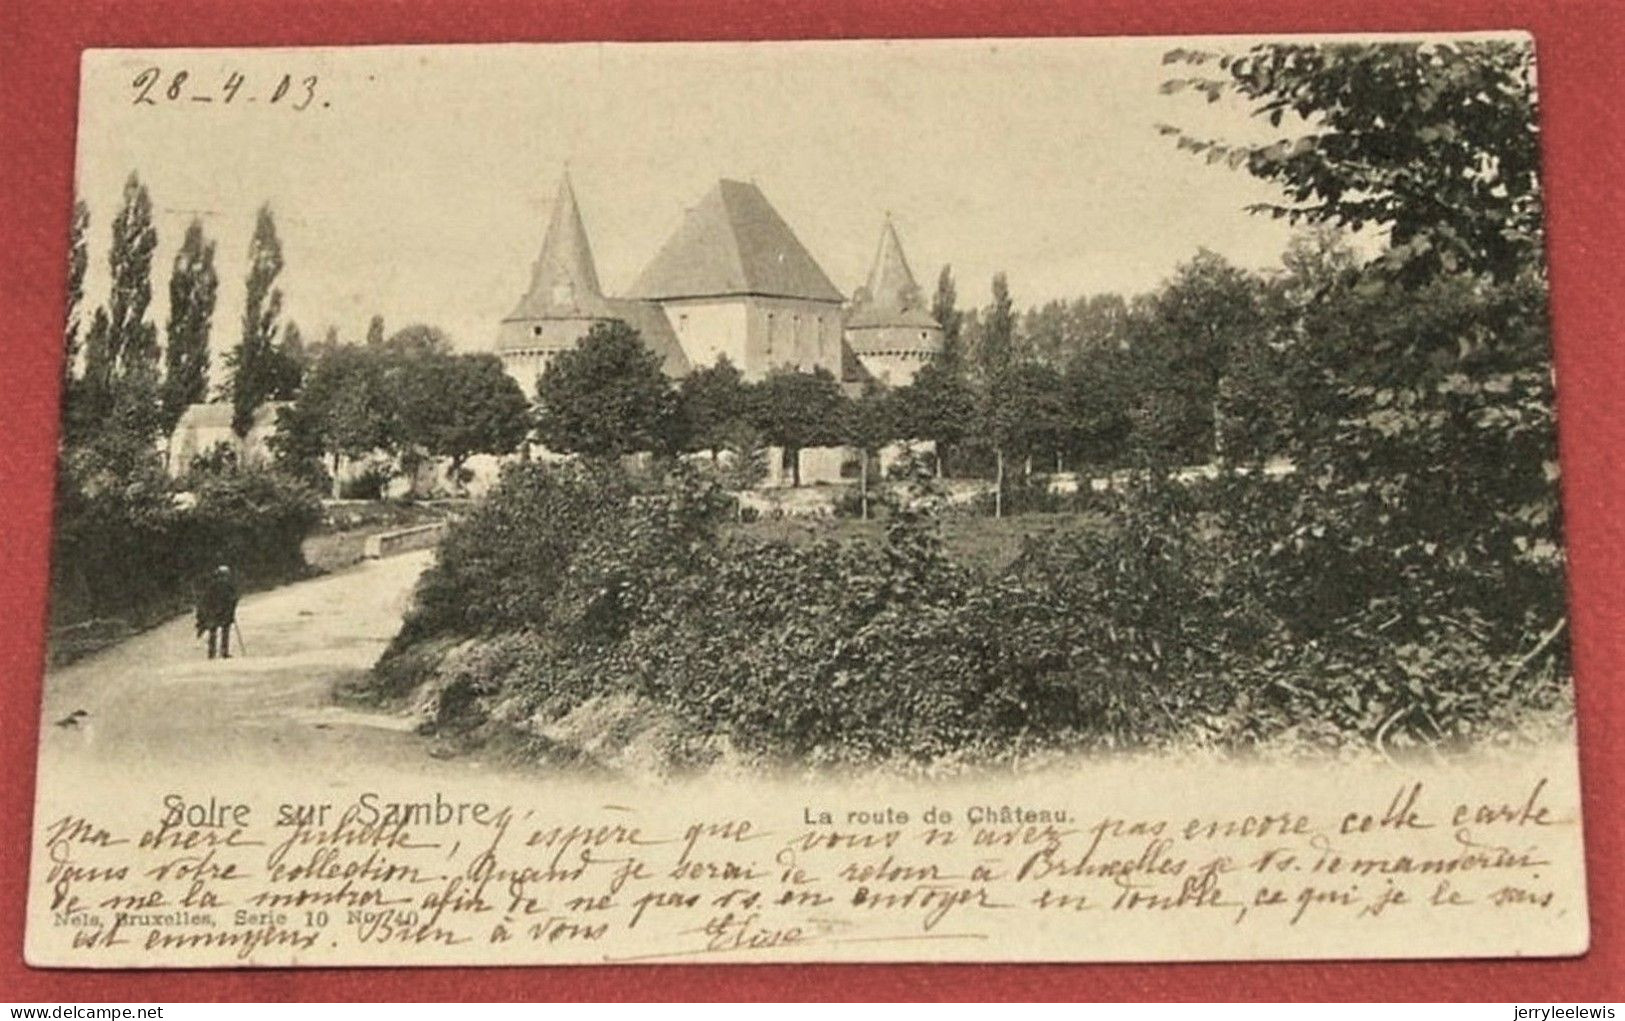 28-4-03.
Solre sur Sambre.
La route de Château.
Ma chère Juliette, J'espère que vous n'avez pas encore cette carte
dans votre collection. Quand je serai de retour à Bruxelles je vs. demanderai
de me la montrer afin de ne pas vs. en envoyer en double, ce qui, je le sais,
Nels, Bruxelles, Serie 10 No. 40
est ennuyeux. Bien à vous Elise
jerryleelewis
delcampe.net